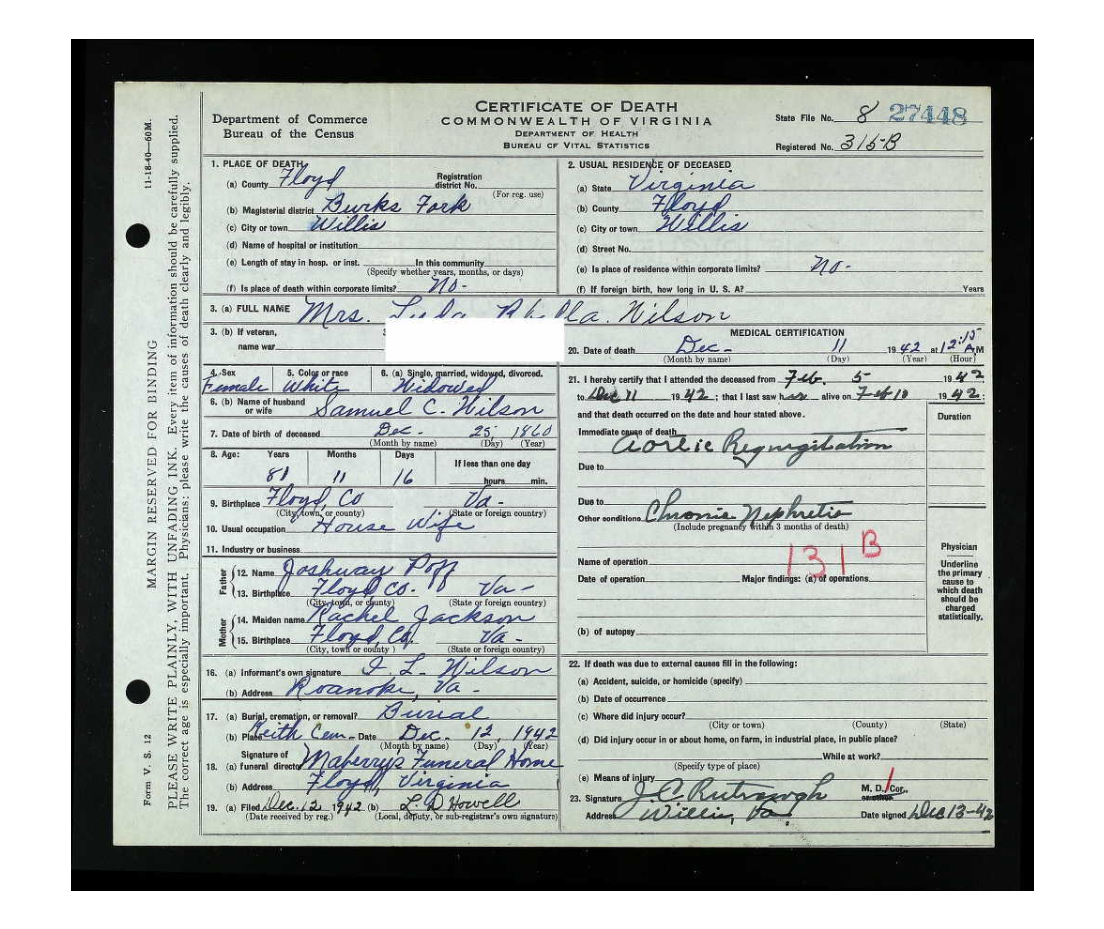 CERTIFICATE OF DEATH
COMMONWEALTH OF VIRGINIA
DEPARTMENT OF HEALTH
BUREAU OF VITAL STATISTICS
Department of Commerce
Bureau of the Census
State File No. 8 27448
Registered No. 315-B
11-18-40—60M.
MARGIN RESERVED FOR BINDING
PLEASE WRITE PLAINLY, WITH UNFADING INK. Every item of information should be carefully supplied.
The correct age is especially important. Physicians: please write the causes of death clearly and legibly.
Form V. S. 12
1. PLACE OF DEATH
(a) County Floyd Registration district No.
(For reg. use)
(b) Magisterial district Burks Fork
(c) City or town Willis
(d) Name of hospital or institution
(e) Length of stay in hosp. or inst. In this community
(Specify whether years, months, or days)
(f) Is place of death within corporate limits? No-
2. USUAL RESIDENCE OF DECEASED
(a) State Virginia
(b) County Floyd
(c) City or town Willis
(d) Street No.
(e) Is place of residence within corporate limits? No-
(f) If foreign birth, how long in U. S. A? Years
3. (a) FULL NAME Mrs. Wilson
3. (b) If veteran,
name war
4. Sex 5. Color or race 6. (a) Single, married, widowed, divorced.
Female White Widowed
6. (b) Name of husband or wife Samuel C. Wilson
7. Date of birth of deceased Dec- 25, 1860
(Month by name) (Day) (Year)
8. Age: Years Months Days If less than one day
81 11 16 hours min.
9. Birthplace Floyd Co Va-
(City, town, or county) (State or foreign country)
10. Usual occupation House Wife
11. Industry or business
Father
12. Name Joshway Poff
13. Birthplace Floyd, Co. Va-
(City, town, or county) (State or foreign country)
Mother
14. Maiden name Rachel Jackson
15. Birthplace Floyd, Co. Va-
(City, town or county) (State or foreign country)
16. (a) Informant's own signature I. L. Wilson
(b) Address Roanoke, Va-
17. (a) Burial, cremation, or removal? Burial
(b) Place Keith Cem- Date Dec. 12, 1942
(Month by name) (Day) (Year)
18. (a) Signature of funeral director Maberry's Funeral Home
(b) Address Floyd, Virginia
19. (a) Filed Dec. 12 1942 (b) L. D Howell
(Date received by reg.) (Local, deputy, or sub-registrar's own signature)
MEDICAL CERTIFICATION
20. Date of death Dec- 11 1942 at 12:15 AM
(Month by name) (Day) (Year) (Hour)
21. I hereby certify that I attended the deceased from Feb. 5 1942
to Dec 11 1942; that I last saw her alive on Feb 10 1942;
and that death occurred on the date and hour stated above.
Duration
Immediate cause of death Aortic Regurgitation
Due to
Due to
Other conditions Chronic Nephritis
(Include pregnancy within 3 months of death)
131 B
Name of operation
Date of operation Major findings: (a) of operations
(b) of autopsy
Physician
Underline
the primary
cause to
which death
should be
charged
statistically.
22. If death was due to external causes fill in the following:
(a) Accident, suicide, or homicide (specify)
(b) Date of occurrence
(c) Where did injury occur?
(City or town) (County) (State)
(d) Did injury occur in or about home, on farm, in industrial place, in public place?
While at work?
(Specify type of place)
(e) Means of injury
23. Signature J. C. Rutrough M. D., Cor.,
Address Willis, Va. Date signed Dec 13-42